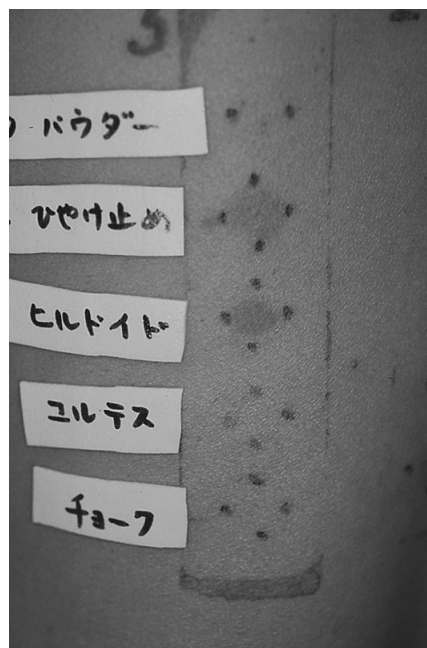 パウダー
ひやけ止め
ヒルドイド
コルテス
チョーク